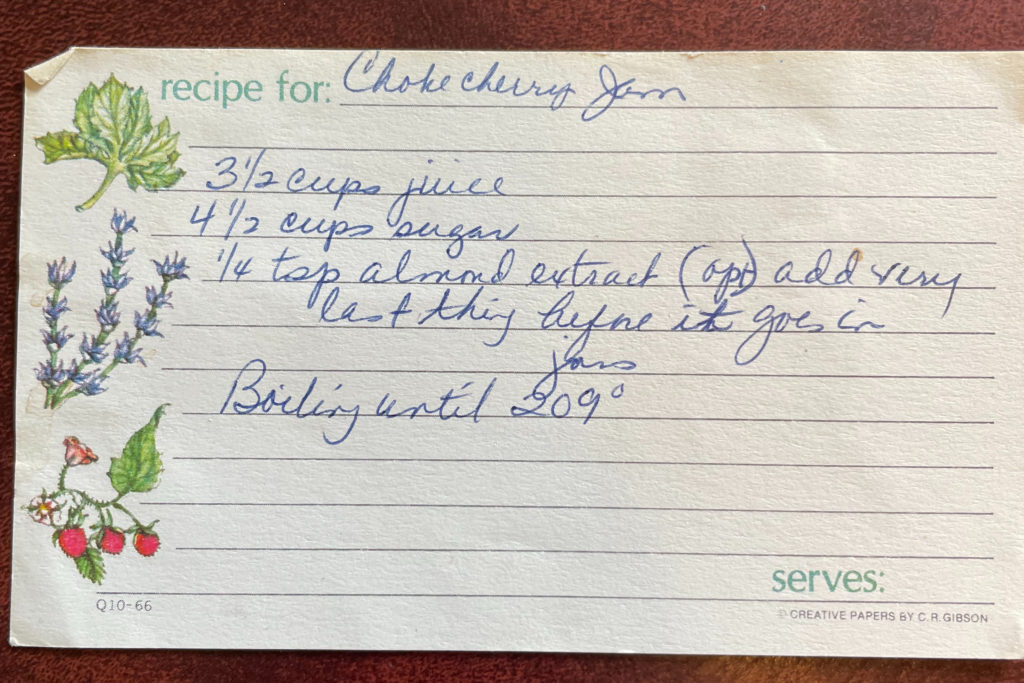 recipe for: Chokecherry Jam
3 1/2 cups juice
4 1/2 cups sugar
1/4 tsp almond extract (opt) add very
last thing before it goes in
jars
Boiling until 209°
serves:
Q10-66
© CREATIVE PAPERS BY C.R. GIBSON